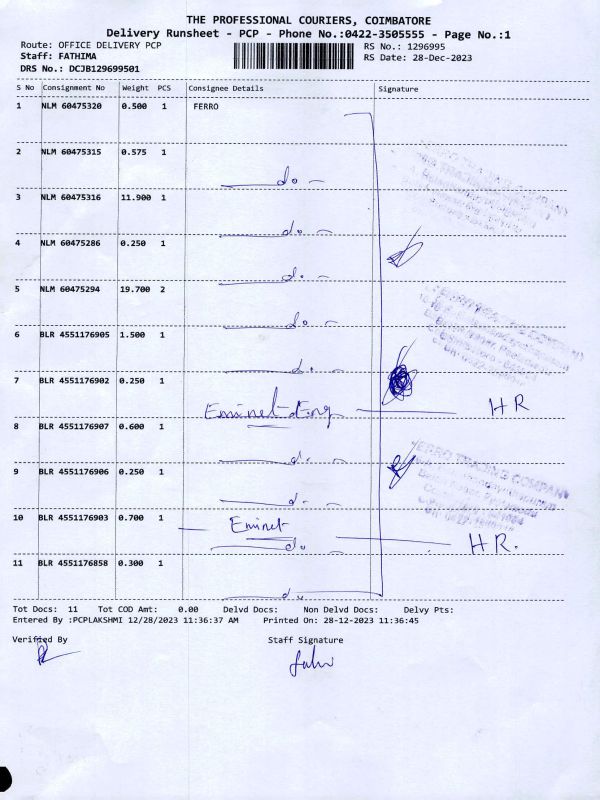 THE PROFESSIONAL COURIERS, COIMBATORE
Delivery Runsheet - PCP - Phone No.:0422-3505555 - Page No.:1
Route: OFFICE DELIVERY PCP
RS No.: 1296995
Staff: FATHIMA
RS Date: 28-Dec-2023
DRS No.: DCJB129699501
S No Consignment No Weight PCS Consignee Details Signature
1 NLM 60475320 0.500 1 FERRO
2 NLM 60475315 0.575 1
do -
3 NLM 60475316 11.900 1
do -
4 NLM 60475286 0.250 1
do -
5 NLM 60475294 19.700 2
do -
6 BLR 4551176905 1.500 1
do -
7 BLR 4551176902 0.250 1
Eminet-Eng HR
8 BLR 4551176907 0.600 1
do -
9 BLR 4551176906 0.250 1
FERRO TRADING COMPANY
do -
10 BLR 4551176903 0.700 1
Eminet
do HR.
11 BLR 4551176858 0.300 1
do -
Tot Docs: 11 Tot COD Amt: 0.00 Delvd Docs: Non Delvd Docs: Delvy Pts:
Entered By :PCPLAKSHMI 12/28/2023 11:36:37 AM Printed On: 28-12-2023 11:36:45
Verified By Staff Signature